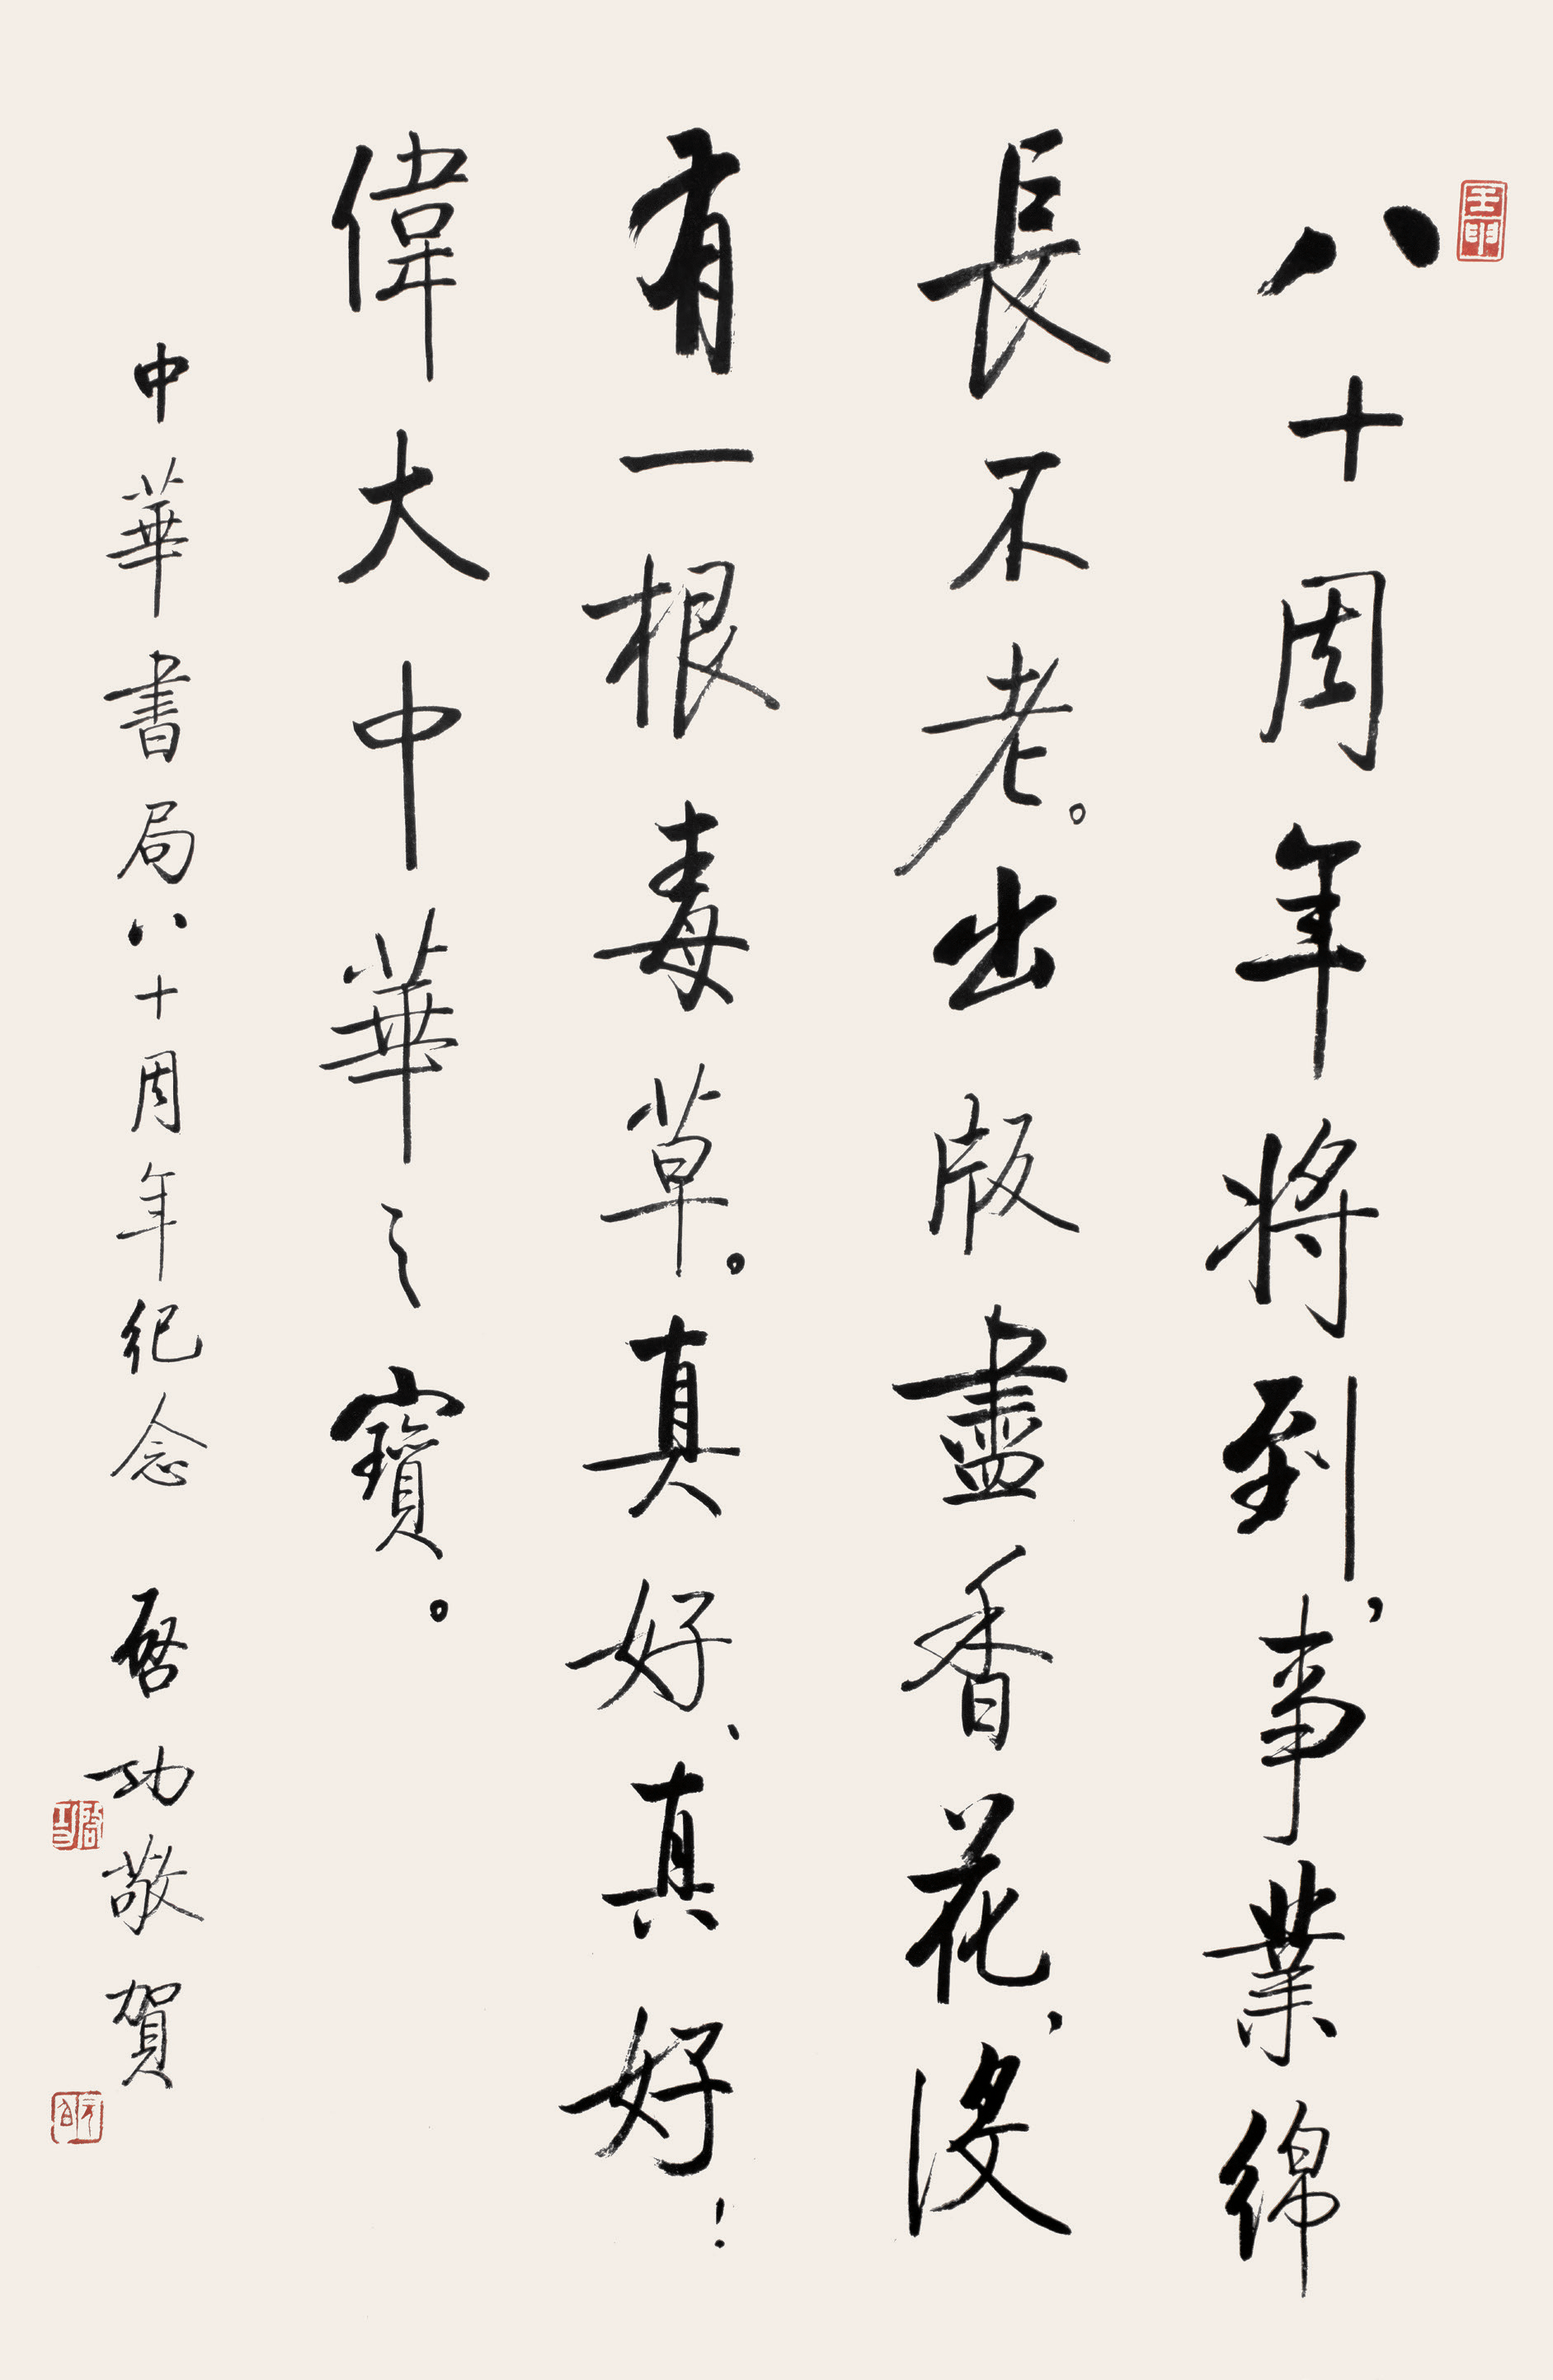 八十周年将到，事業綿
長不老。出版盡香花，没
有一根毒草。真好、真好！
偉大中華之寶。
中華書局八十周年纪念 啓功敬賀